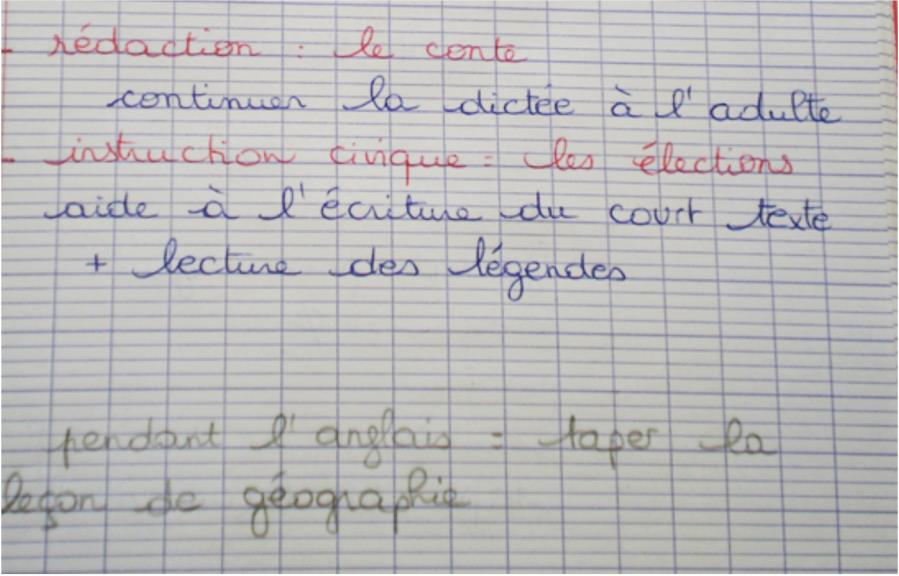 - rédaction : le conte
continuer la dictée à l'adulte
- instruction civique : les élections
aide à l'écriture du court texte
+ lecture des légendes
pendant l'anglais : taper la
leçon de géographie